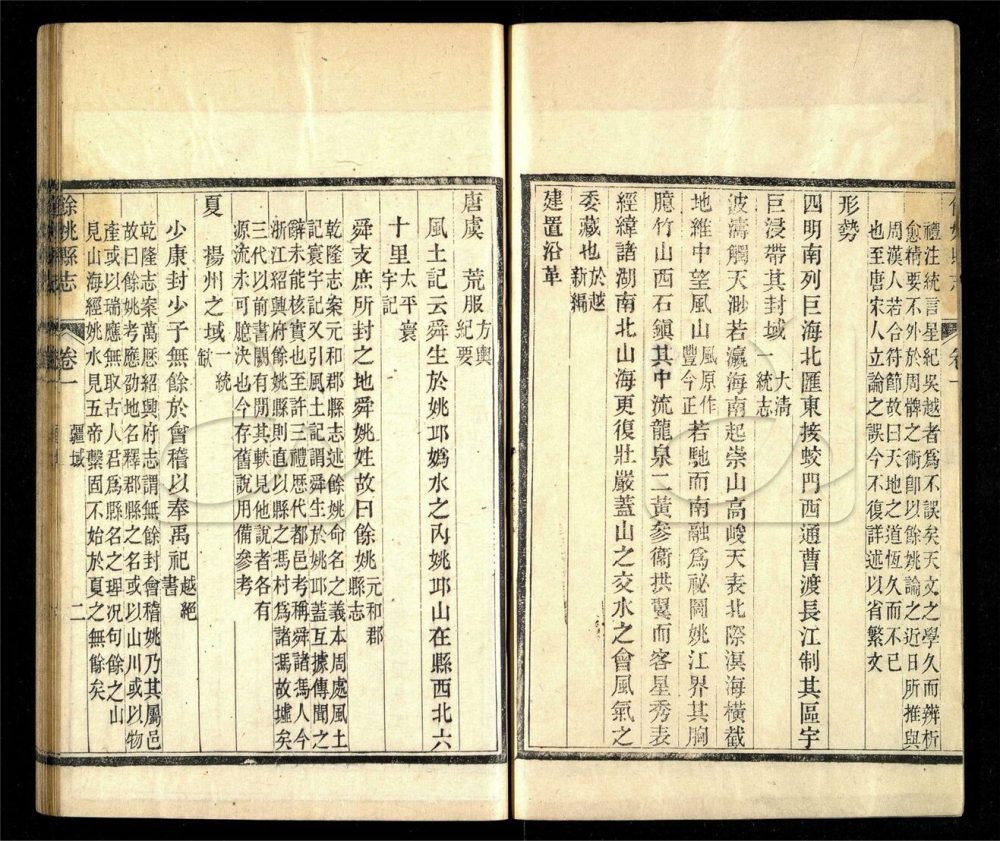 禮注統言星紀吳越者爲不誤矣天文之學久而辨析
愈精要不外於周髀之術卽以餘姚論之近日所推與
周漢人若合符節故曰天地之道恆久而不已
也至唐宋人立論之誤今不復詳述以省繁文
形勢
四明南列巨海北匯東接蛟門西通曹渡長江制其區宇
巨浸帶其封域大淸一統志
波濤觸天渺若瀛海南起崇山高峻天表北際溟海橫截
地維中望風山風原作豐今正若馳而南融爲祕圖姚江界其胸
臆竹山西石鎭其中流龍泉二黃參衞拱翼而客星秀表
經緯諸湖南北山海更復壯嚴蓋山之交水之會風氣之
委藏也於越新編
建置沿革
唐虞 荒服方輿紀要
風土記云舜生於姚邱嬀水之內姚邱山在縣西北六
十里太平寰宇記
舜支庶所封之地舜姚姓故曰餘姚元和郡縣志
乾隆志案元和郡縣志述餘姚命名之義本周處風土
記寰宇記又引風土記謂舜生於姚邱蓋互據傳聞之
辭未能核實也至許三禮歷代都邑考稱舜諸馮人今
浙江紹興府餘姚縣則直以縣之馮村爲諸馮故墟矣
三代以前書闕有閒其軼見他說者各有
源流未可臆決也今存舊說用備參考
夏 揚州之域一統
少康封少子無餘於會稽以奉禹祀越絕書
乾隆志案萬歷紹興府志謂無餘封會稽姚乃其屬邑
故曰餘姚考應劭地名釋郡縣之名或以山川或以物
產或以瑞應無取古人君爲縣名之理况句餘之山
見山海經姚水見五帝繫固不始於夏之無餘矣
餘姚縣志 卷一 疆域 二